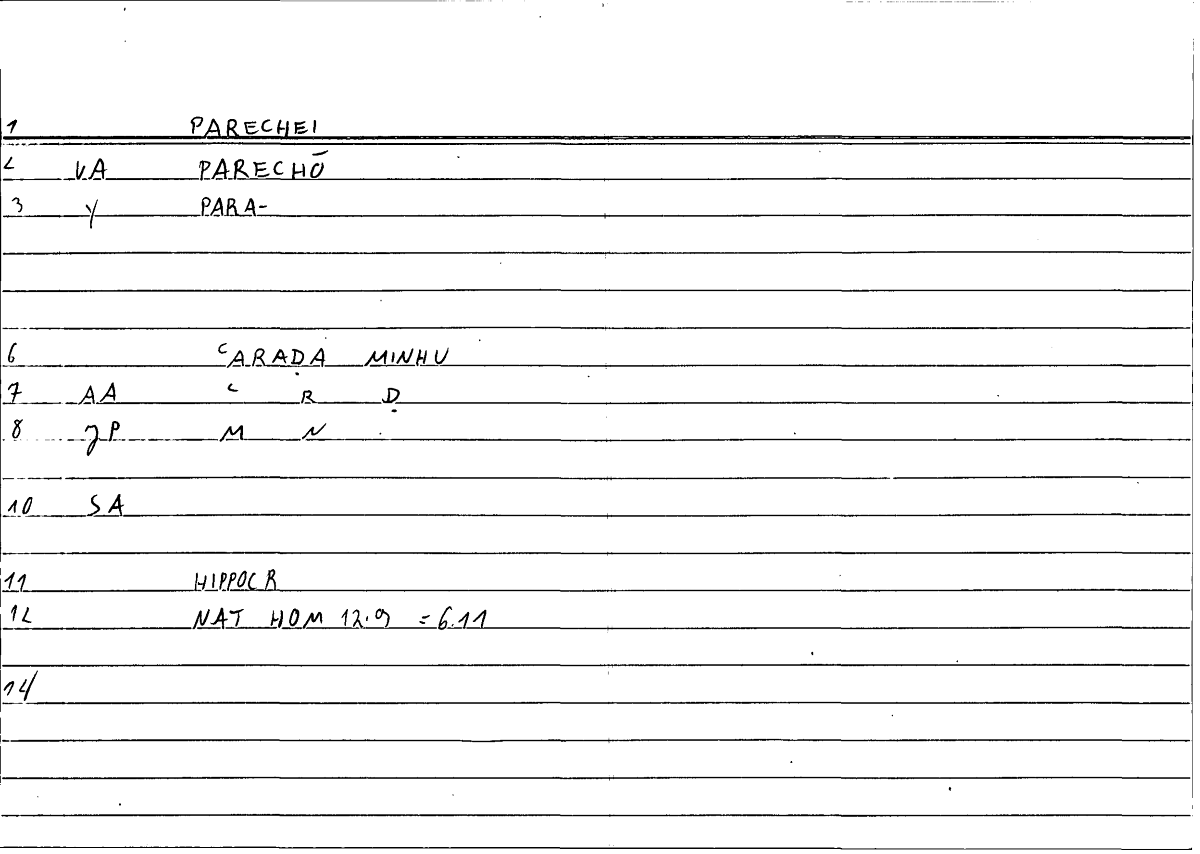 1 PARECHEI
2 VA PARECHŌ
3 Y PARA-
6 ʿARAḌA MINHU
7 AA ʿ R Ḍ
8 JP M N
10 SA
11 HIPPOCR
12 NAT HOM 12.9 = 6.11
14